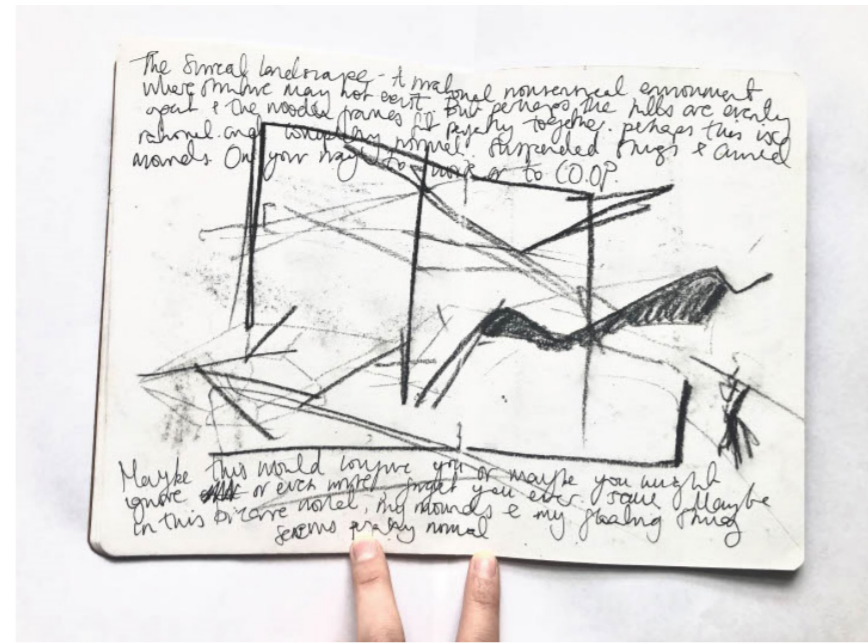 The Surreal landscape - A irrational nonsensical environment
where structure may not exist. But perhaps the hills are evenly
apart & the wooden frames fit perfectly together. perhaps this is
rational and completely normal. Suspended things &
mounds On your way to work or to CO.OP.
Maybe this would confuse you or maybe you might
ignore or even more forget you ever saw Maybe
in this bizarre world, my mounds & my floating things
seems pretty normal